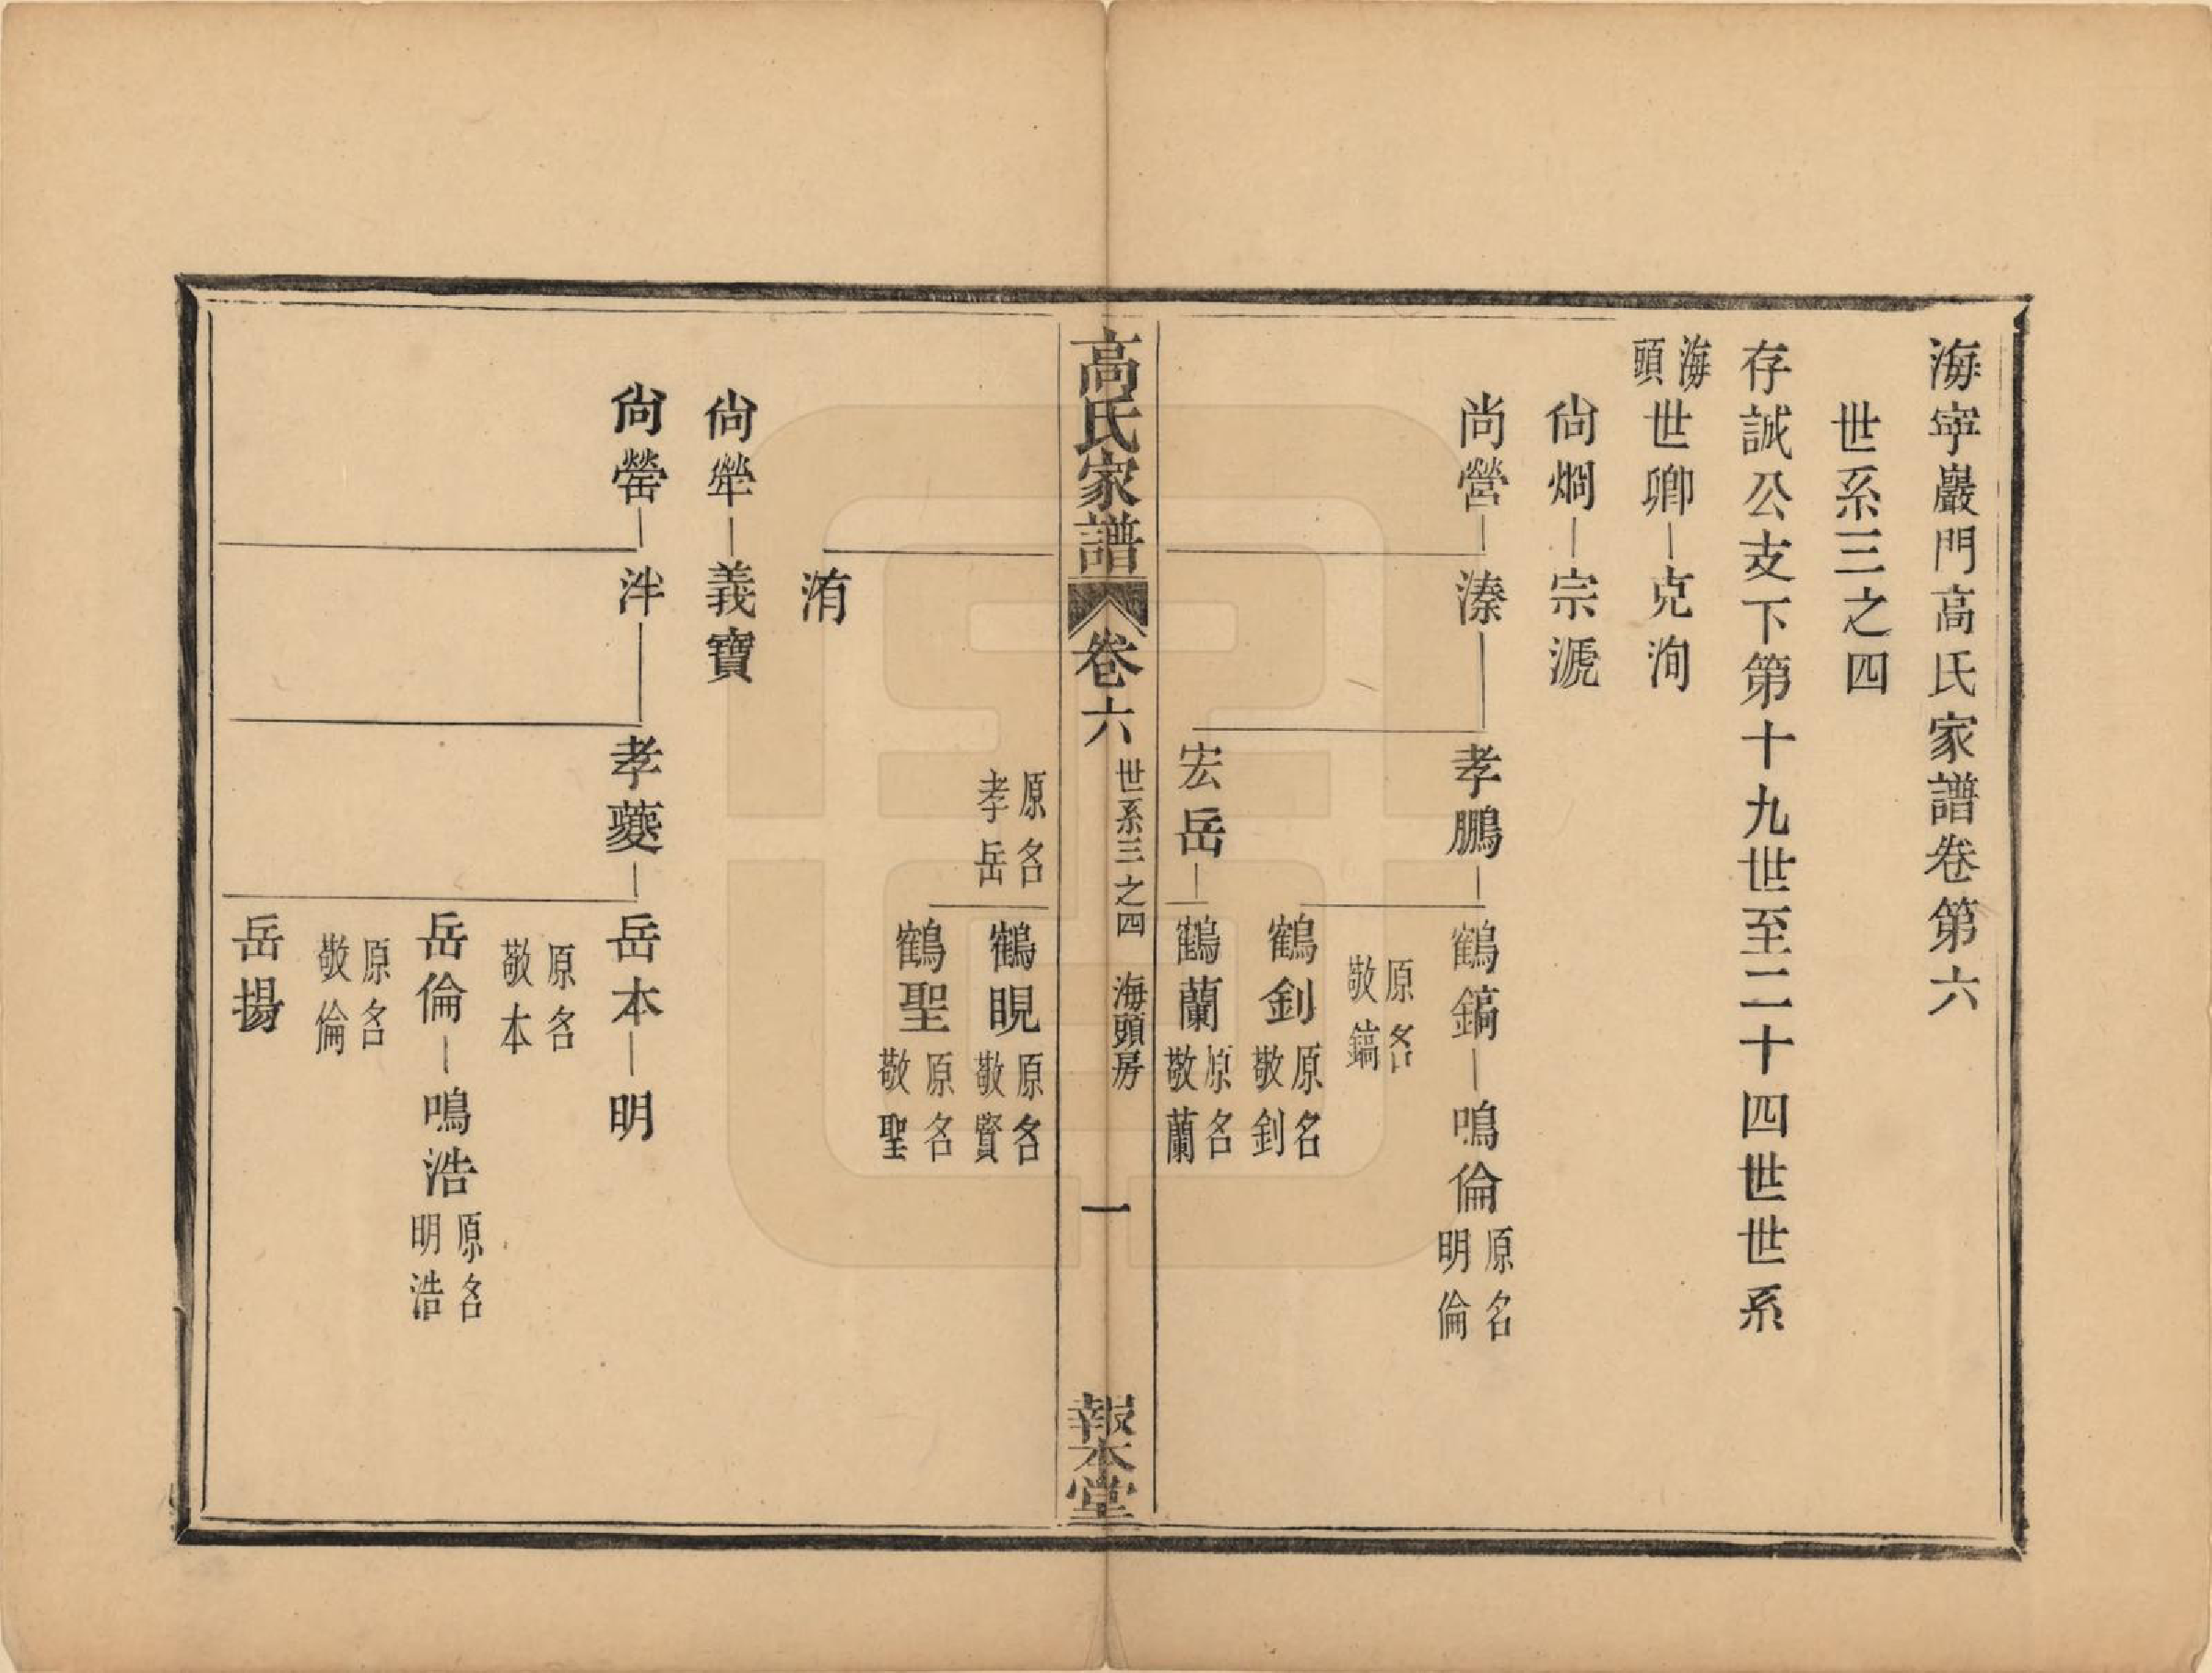 海寧巖門高氏家譜卷第六
世系三之四
存誠公支下第十九世至二十四世世系
海頭世卿 克洵
尙烱 宗漉
尚營 溱 孝鵬 鶴鎬 鳴倫 原名明倫
原名敬鎬
鶴釗 原名敬釗
宏岳 鶴蘭 原名敬蘭
高氏家譜 卷六 世系三之四 海頭房 一 報本堂
原名孝岳 鶴睍 原名敬賢
鶴聖 原名敬聖
洧
尙犖 義寶
尙罃 泮 孝夔 岳本 明
原名敬本
岳倫 鳴浩 原名明浩
原名敬倫
岳揚